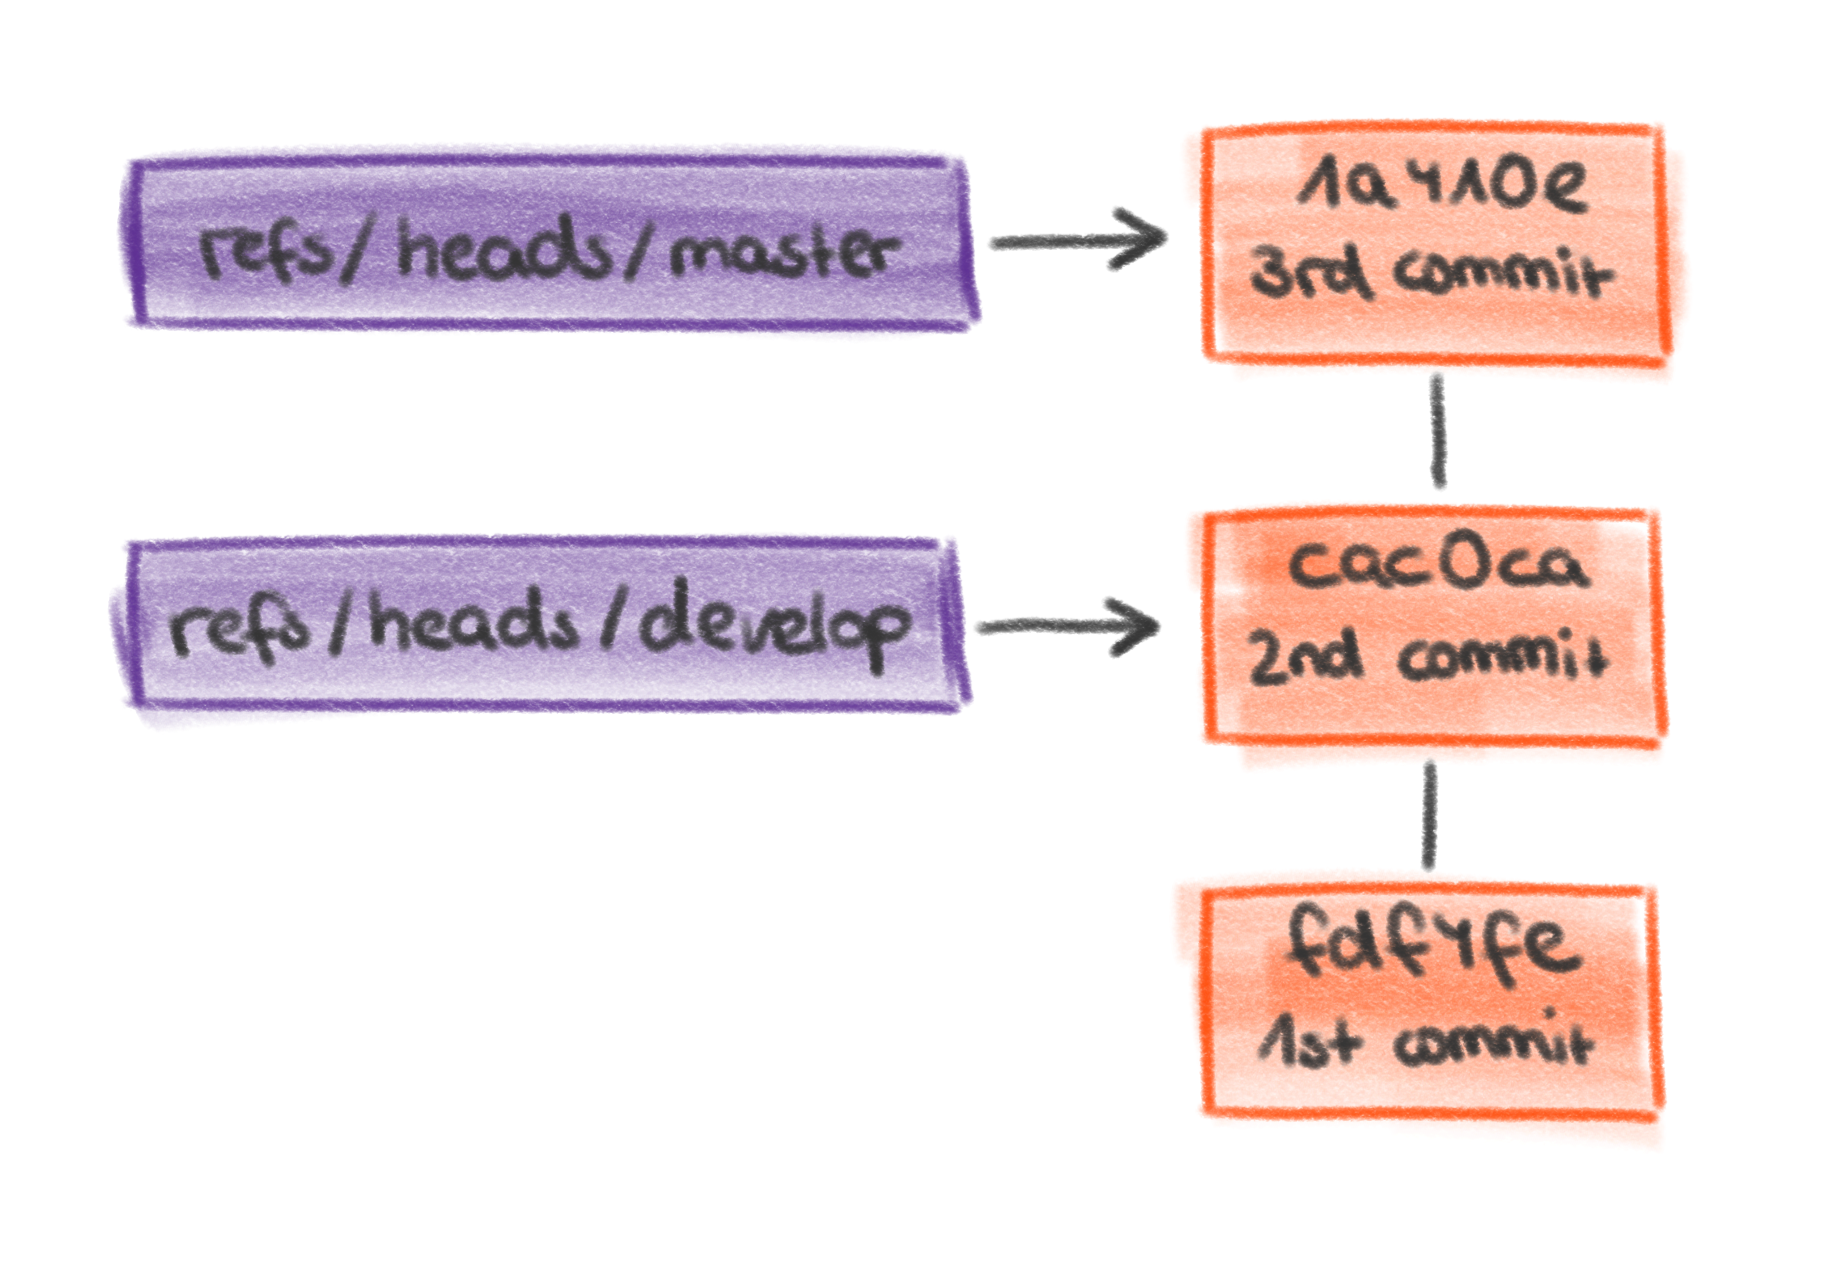 refs/heads/master
1a410e
3rd commit
refs/heads/develop
cac0ca
2nd commit
fdf4fe
1st commit